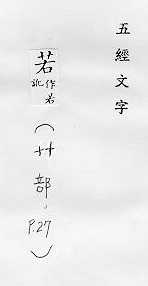 五經文字
若
作若
訛
（艸部，P.27）